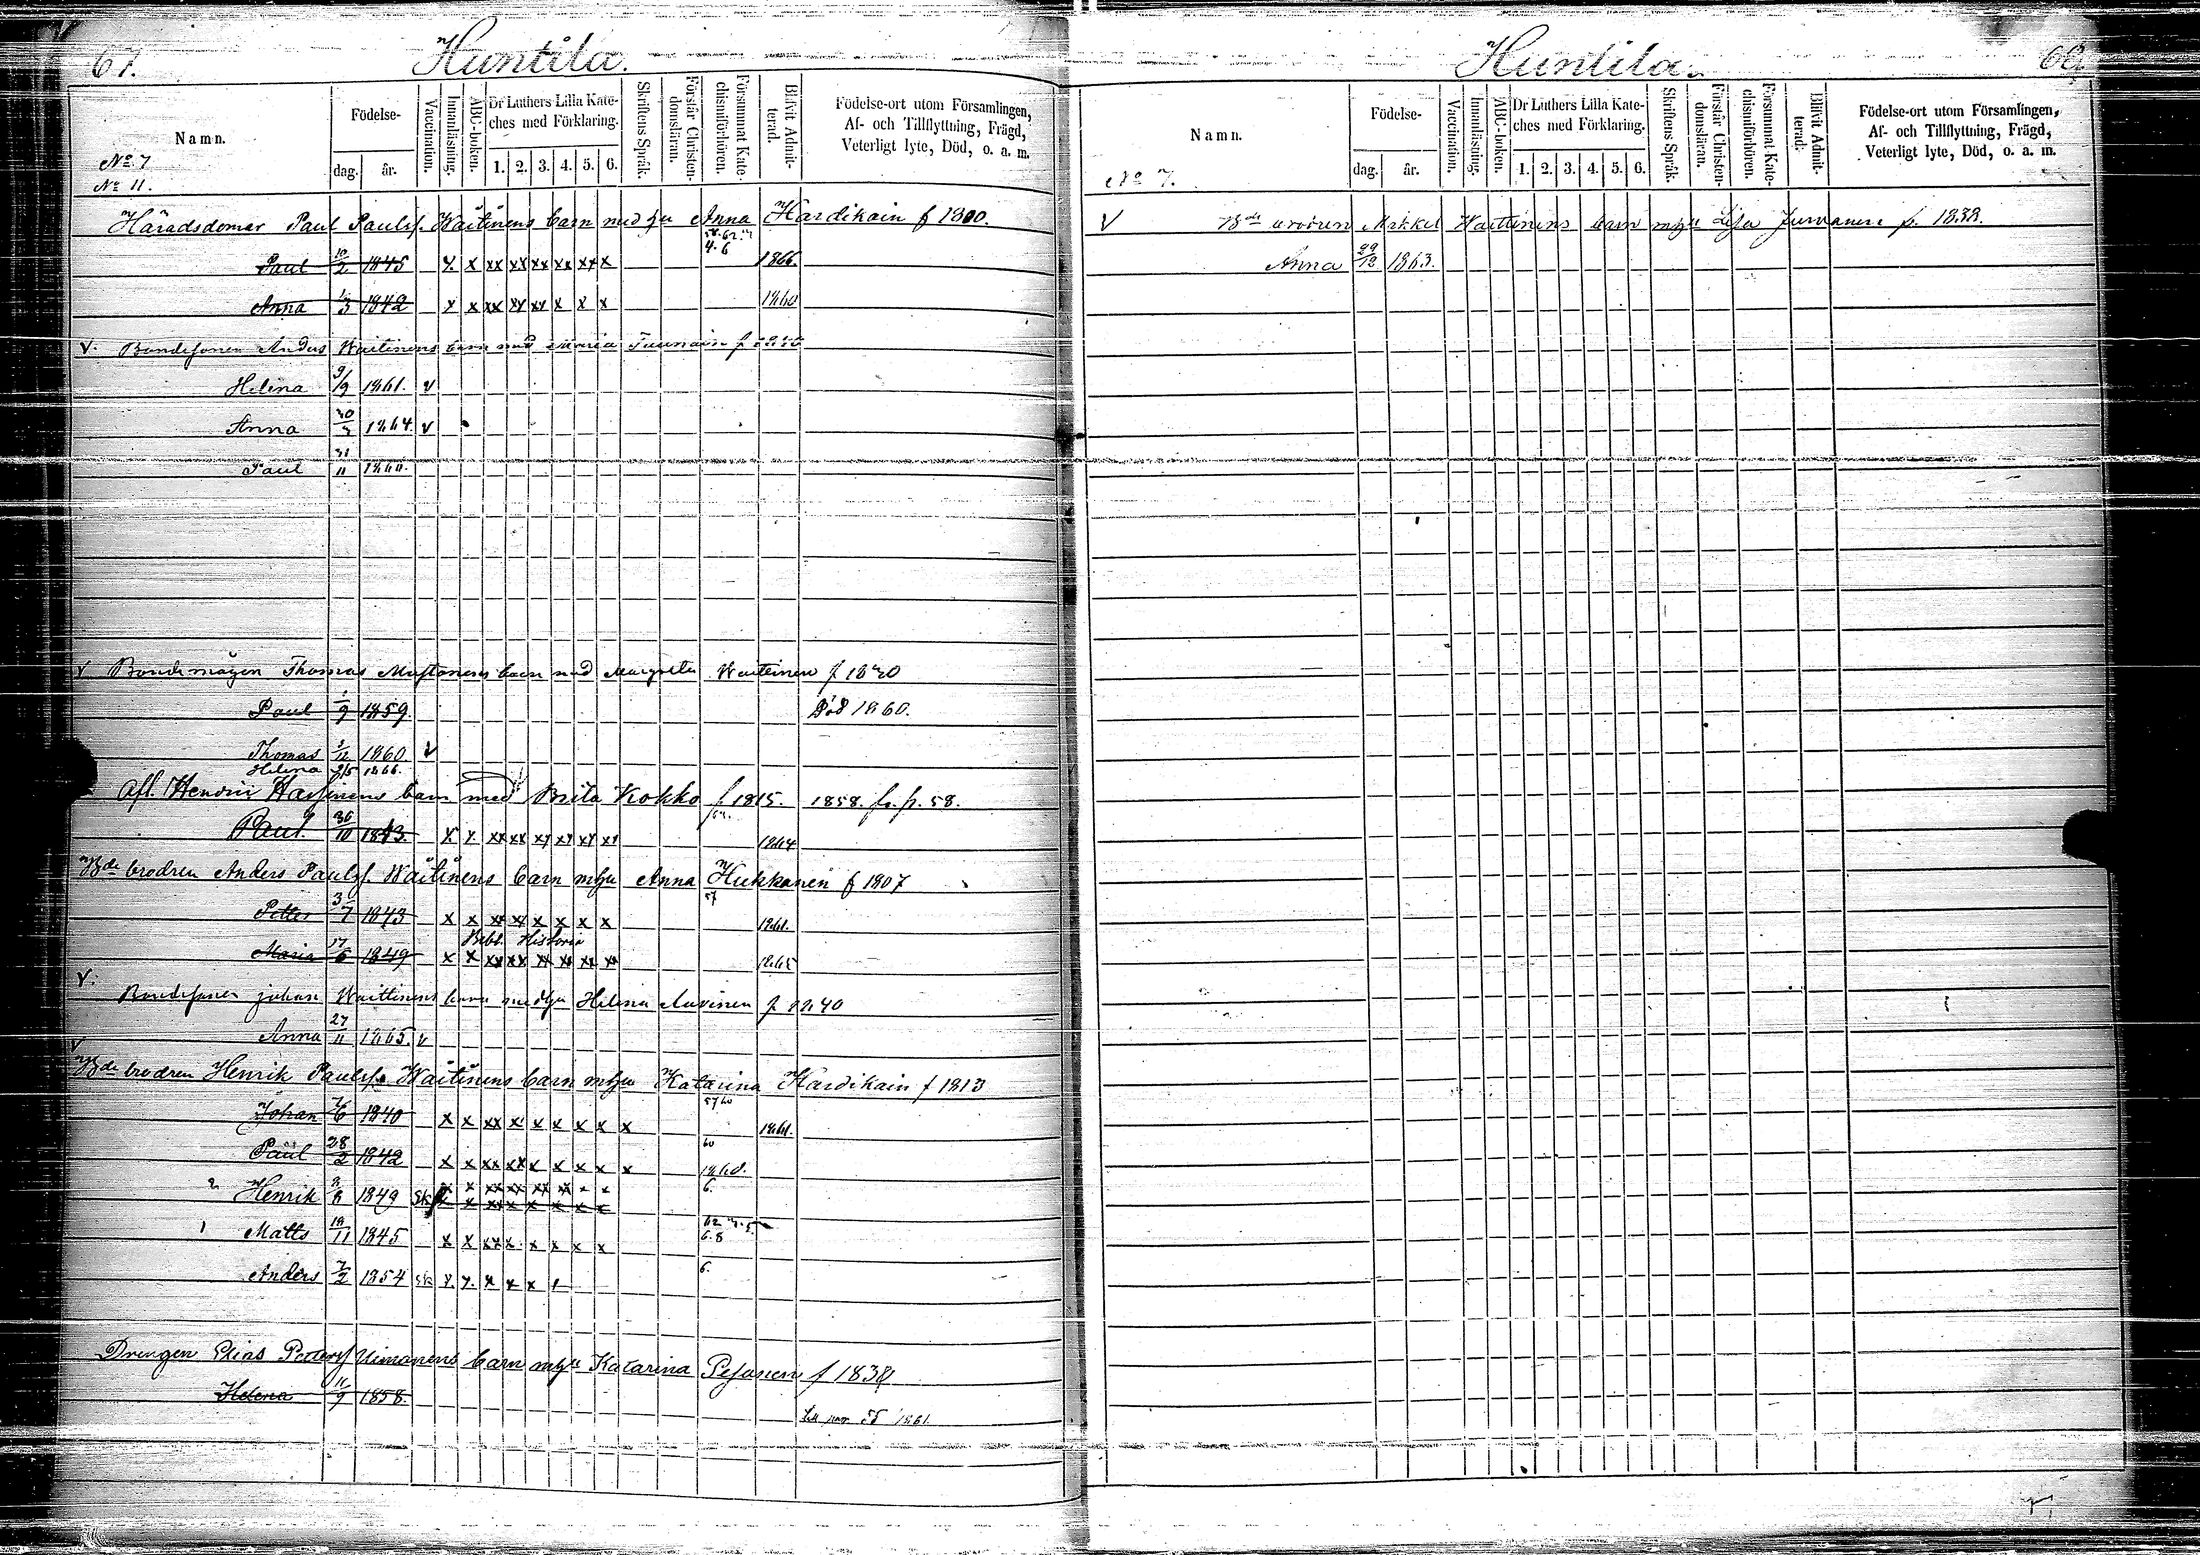 67. Huntila.
Namn. Födelse- dag. år. Vaccination. Innanläsning. ABC-boken. Dr Luthers Lilla Kateches med Förklaring. 1. 2. 3. 4. 5. 6. Skriftens Språk. Förstår Christendomsläran. Försummat Katechismiförhören. Blifvit Admitterad. Födelse-ort utom Församlingen, Af- och Tillflyttning, Frägd, Veterligt lyte, Död, o. a. m.
No 7
No 11.
Häradsdomar Paul Paulsf. Waitinens barn med hu Anna Hardikain f 1800.
Paul 10/2 1845 x x xx xx xx xx xx x 4. 6 1866.
Anna 1/3 1842 x x xx xx xx x x x 1860
v. Bondesonen Anders Waitinens barn med Maria
Helina 9/9 1861. v
Anna 1864. v
Paul
v Bondemågen Thomas Mustonens barn med Margreta Waitinen f 1840
Paul 1/9 1859. Död 1860.
Thomas 1/12 1860. v
Helena 2/5 1866.
Afl. Henrik barn med Brita Kokko f 1815. 1858. fr. p. 58.
Paul 30/10 1843. x x xx xx xx xx xx xx 1864
Bde brodren Anders Paulsf. Waitinens barn mhu Anna Hukkanen f 1807
Petter 1843 x x xx xx x x x x 57 1861.
Bibl. Historia
Maria 17/6 1849 x x xx xx xx xx xx xx 1865
v.
Bondesonen Johan Waittinens barn med hu Helena Auvinen f 1840
Anna 27/11 1865. v
v
Bde brodren Henrik Paulsf. Waitinens barn mhu Katarina Hardikain f 1813
Johan 1840 x x xx x x x x x x 57 60 1861.
Paul 28/2 1842 x x xx xx x x x x x 60 1860.
2 Henrik 1849 x x xx xx xx xx x x 6.
x x xx x x x x x
1 Matts 18/11 1845 x x xx x. x x x x 6.8
Anders 7/2 1854 x. x. x x x 6.
Drengen Elias Pettersf Uimonens barn mhu Katarina Pesonen f 1838
Helena 11/9 1858.
55 1861.
Huntila.
Namn. Födelse- dag. år. Vaccination. Innanläsning. ABC-boken. Dr Luthers Lilla Kateches med Förklaring. 1. 2. 3. 4. 5. 6. Skriftens Språk. Förstår Christendomsläran. Försummat Katechismiförhören. Blifvit Admitterad. Födelse-ort utom Församlingen, Af- och Tillflyttning, Frägd, Veterligt lyte, Död, o. a. m.
No 7.
v Bde brodren Mikkel Waittinens barn mhu Lisa Jurvanen f. 1838.
Anna 29/12 1863.